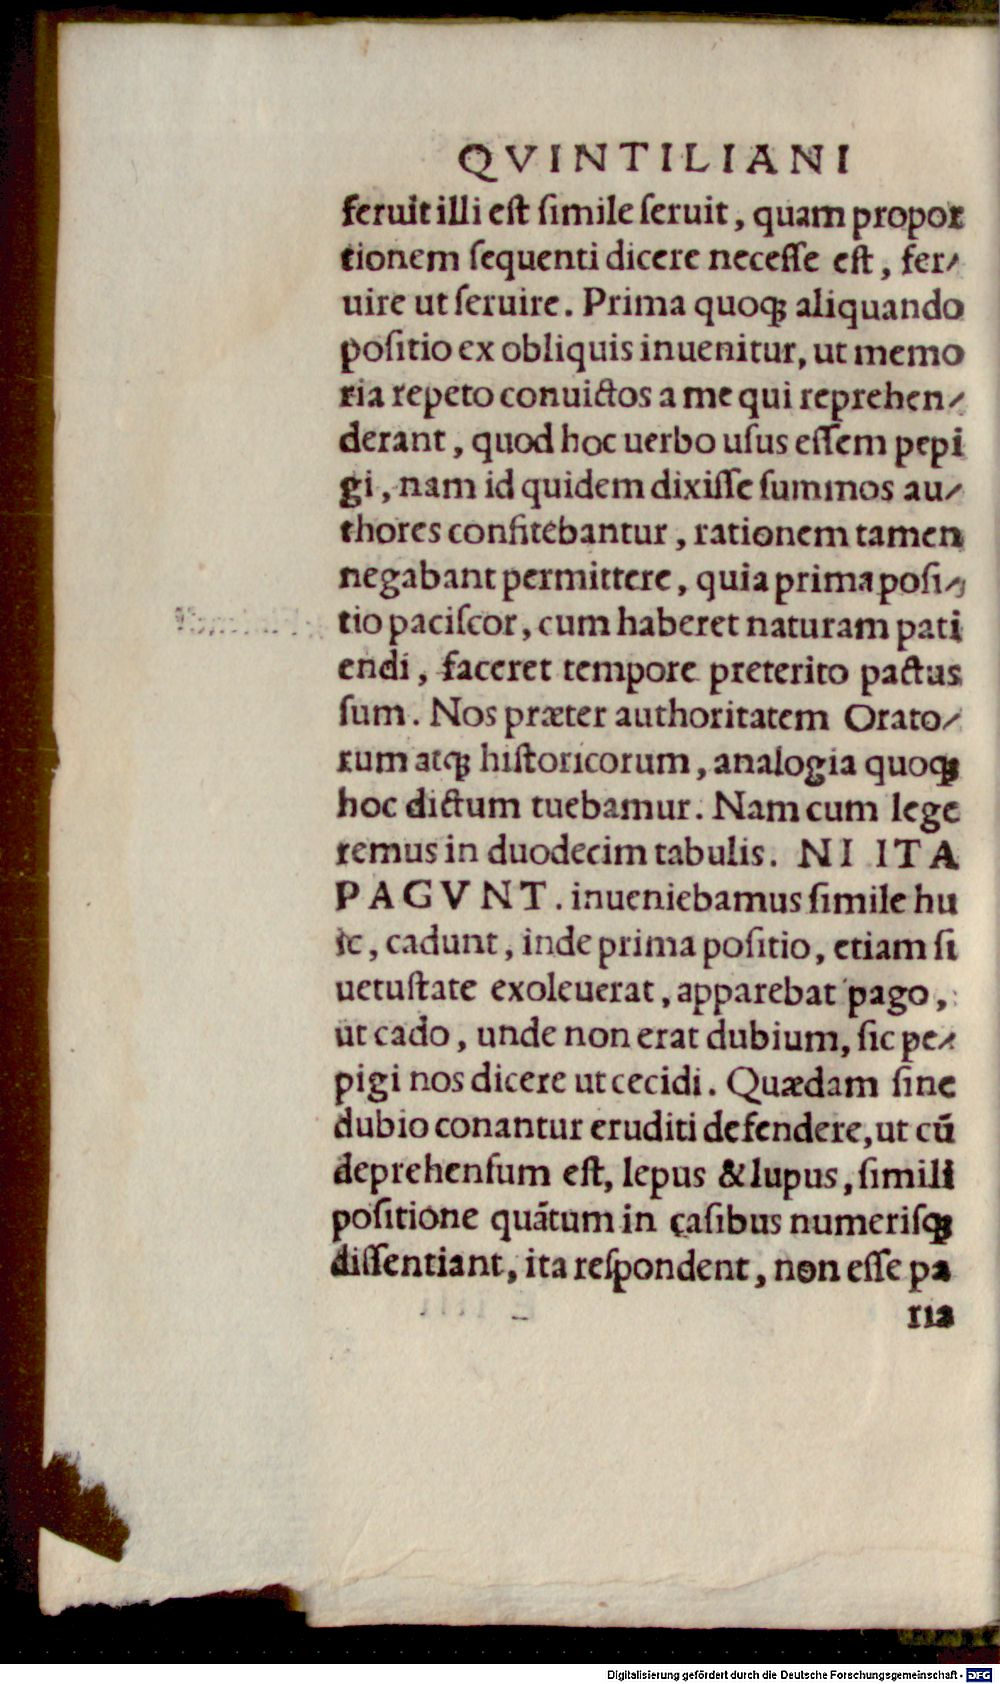 QVINTILIANI
feruit illi est simile seruit, quam propor
tionem sequenti dicere necesse est, fer-
uire ut seruire. Prima quoqꝫ aliquando
positio ex obliquis inuenitur, ut memo
ria repeto conuictos a me qui reprehen-
derant, quod hoc uerbo usus essem pepi
gi, nam id quidem dixisse summos au-
thores confitebantur, rationem tamen
negabant permittere, quia prima posi-
tio paciscor, cum haberet naturam pati
endi, faceret tempore preterito pactus
sum. Nos præter authoritatem Orato-
rum atqꝫ historicorum, analogia quoqꝫ
hoc dictum tuebamur. Nam cum lege
remus in duodecim tabulis. NI ITA
PAGVNT. inueniebamus simile hu
ic, cadunt, inde prima positio, etiam si
uetustate exoleuerat, apparebat pago,
ut cado, unde non erat dubium, sic pe-
pigi nos dicere ut cecidi. Quædam sine
dubio conantur eruditi defendere, ut cū
deprehensum est, lepus & lupus, simili
positione quātum in casibus numerisqꝫ
dissentiant, ita respondent, non esse pa
ria
Digitalisierung gefördert durch die Deutsche Forschungsgemeinschaft - DFG